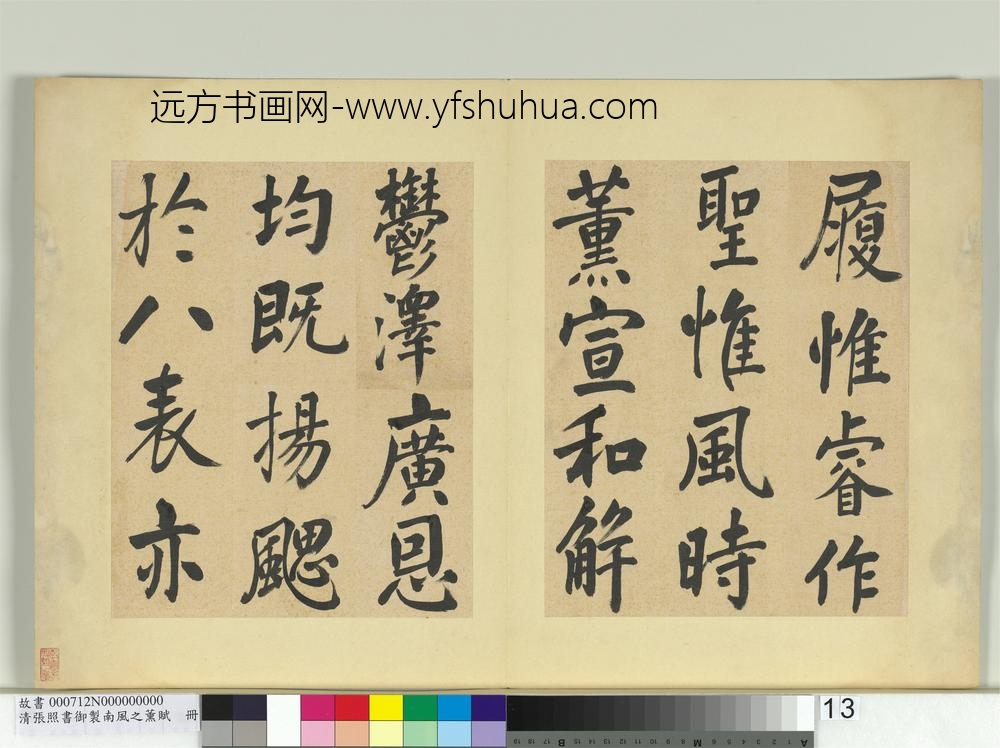 远方书画网-www.yfshuhua.com
履惟睿作
聖惟風時
薰宣和解
鬱澤廣恩
均既揚颸
於八表亦
故書 000712N000000000
清張照書御製南風之薰賦 冊
13